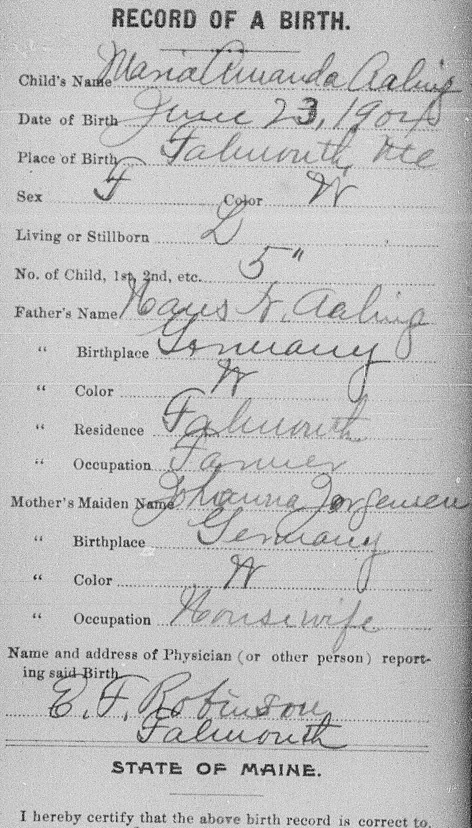 RECORD OF A BIRTH.
Child's Name Maria Amanda Aaling
Date of Birth June 23, 1904
Place of Birth Falmouth, Me
Sex F Color W
Living or Stillborn L
No. of Child, 1st, 2nd, etc. 5"
Father's Name Hans N. Aaling
" Birthplace Germany
" Color W
" Residence Falmouth
" Occupation Farmer
Mother's Maiden Name Johanna Jorgensen
" Birthplace Germany
" Color W
" Occupation Housewife
Name and address of Physician (or other person) report-
ing said Birth
E. F. Robinson
Falmouth
STATE OF MAINE.
I hereby certify that the above birth record is correct to,